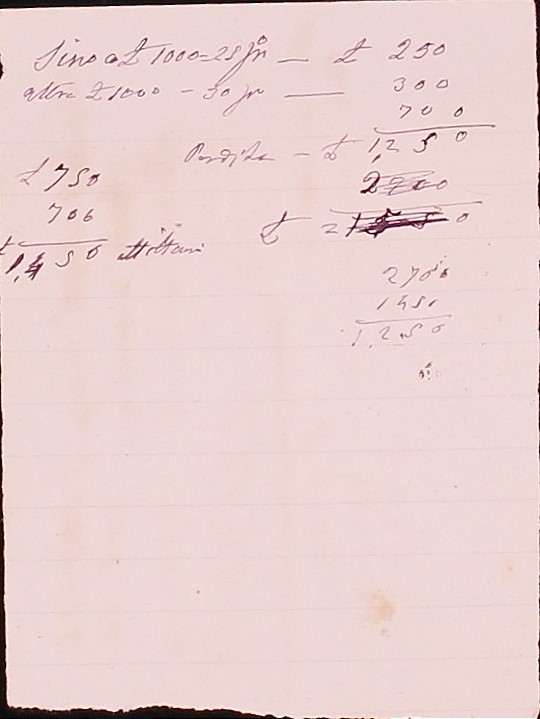 Sino a £ 1000 = 25 fr — £ 250
altre £ 1000 - 30 fr — 300
700
Perdita - £ 1,250
£ 750
706
£ 1,450
£ 2
2700
1450
1,250